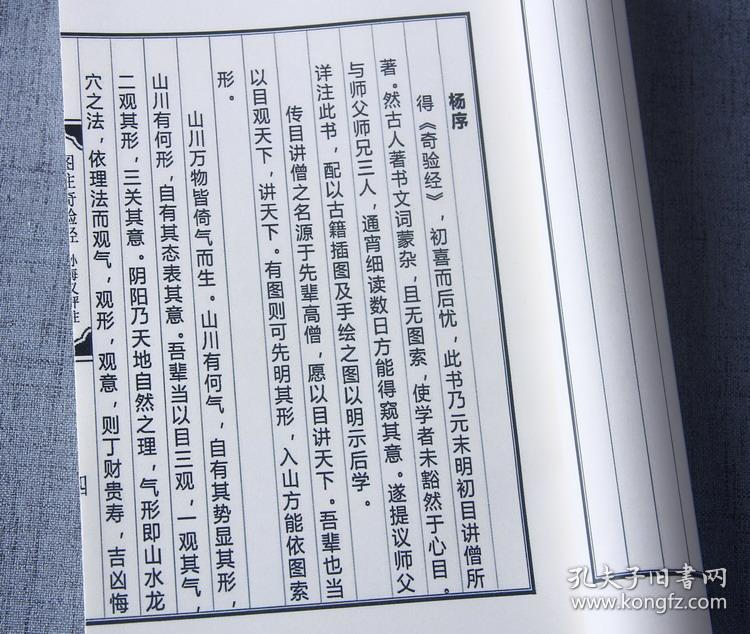 杨序
得《奇验经》，初喜而后忧，此书乃元末明初目讲僧所
著。然古人著书文词蒙杂，且无图索，使学者未豁然于心目。
与师父师兄三人，通宵细读数日方能得窥其意。遂提议师父
详注此书，配以古籍插图及手绘之图以明示后学。
传目讲僧之名源于先辈高僧，愿以目讲天下。吾辈也当
以目观天下，讲天下。有图则可先明其形，入山方能依图索
形。
山川万物皆倚气而生。山川有何气，自有其势显其形，
山川有何形，自有其态表其意。吾辈当以目三观，一观其气，
二观其形，三关其意。阴阳乃天地自然之理，气形即山水龙
穴之法，依理法而观气，观形，观意，则丁财贵寿，吉凶悔
图注奇验经 孙海义评注
四
孔夫子旧书网
www.kongfz.com